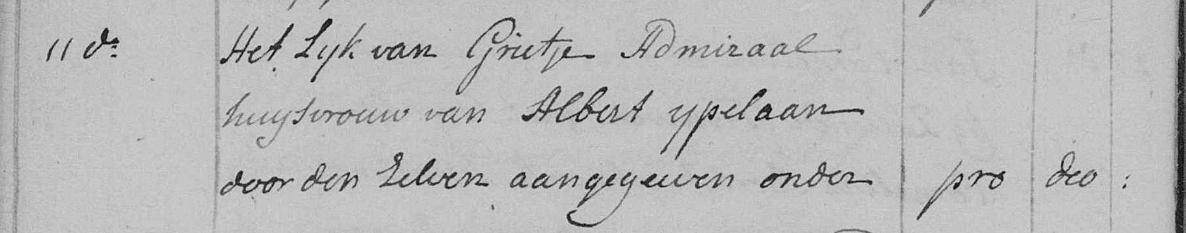 11 do: Het Lyk van Grietje Admiraal
huysvrouw van Albert ypelaan
door den Zelven aangegeven onder pro deo :